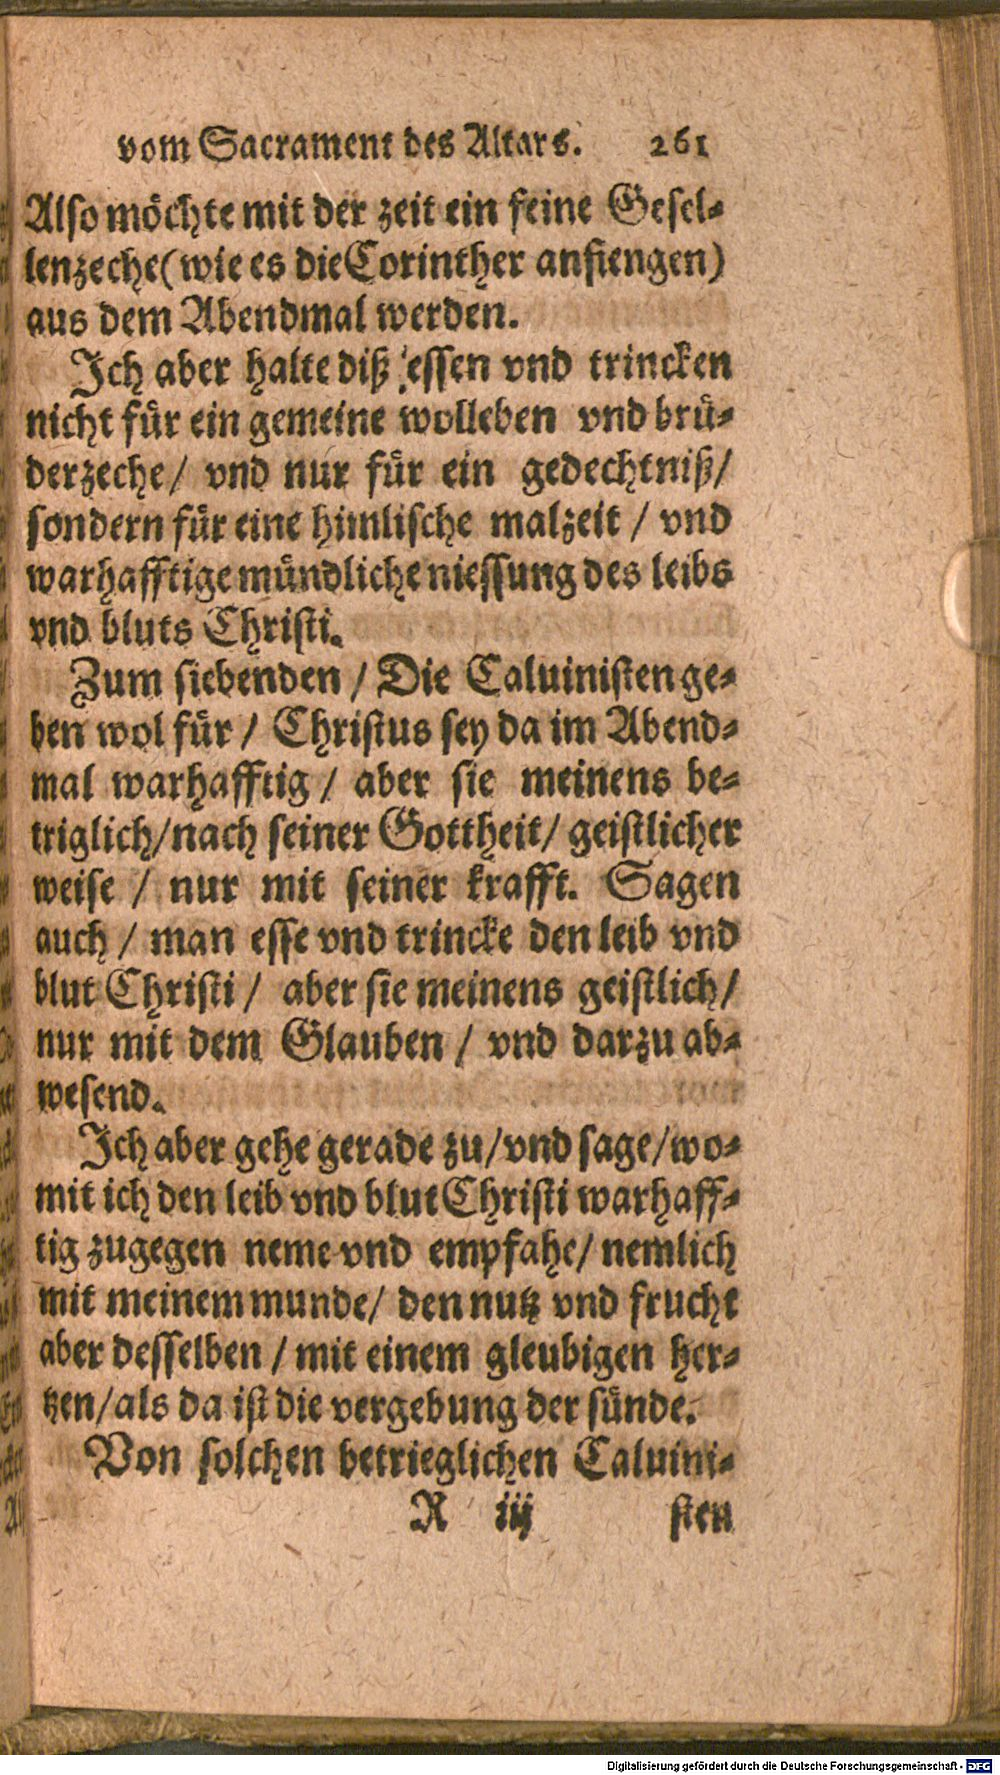 vom Sacrament des Altars. 261
Also möchte mit der zeit ein feine Gesel-
lenzeche (wie es die Corinther anfiengen)
aus dem Abendmal werden.
Ich aber halte diß essen vnd trincken
nicht für ein gemeine wolleben vnd brü-
derzeche / vnd nur für ein gedechtniß /
sondern für eine himlische malzeit / vnd
warhafftige mündliche niessung des leibs
vnd bluts Christi.
Zum siebenden / Die Caluinisten ge-
ben wol für / Christus sey da im Abend-
mal warhafftig / aber sie meinens be-
triglich / nach seiner Gottheit / geistlicher
weise / nur mit seiner krafft. Sagen
auch / man esse vnd trincke den leib vnd
blut Christi / aber sie meinens geistlich /
nur mit dem Glauben / vnd darzu ab-
wesend.
Ich aber gehe gerade zu / vnd sage / wo-
mit ich den leib vnd blut Christi warhaff-
tig zugegen neme vnd empfahe / nemlich
mit meinem munde / den nutz vnd frucht
aber desselben / mit einem gleubigen her-
tzen / als da ist die vergebung der sünde.
Von solchen betrieglichen Caluini-
R iij sten
Digitalisierung gefördert durch die Deutsche Forschungsgemeinschaft - DFG